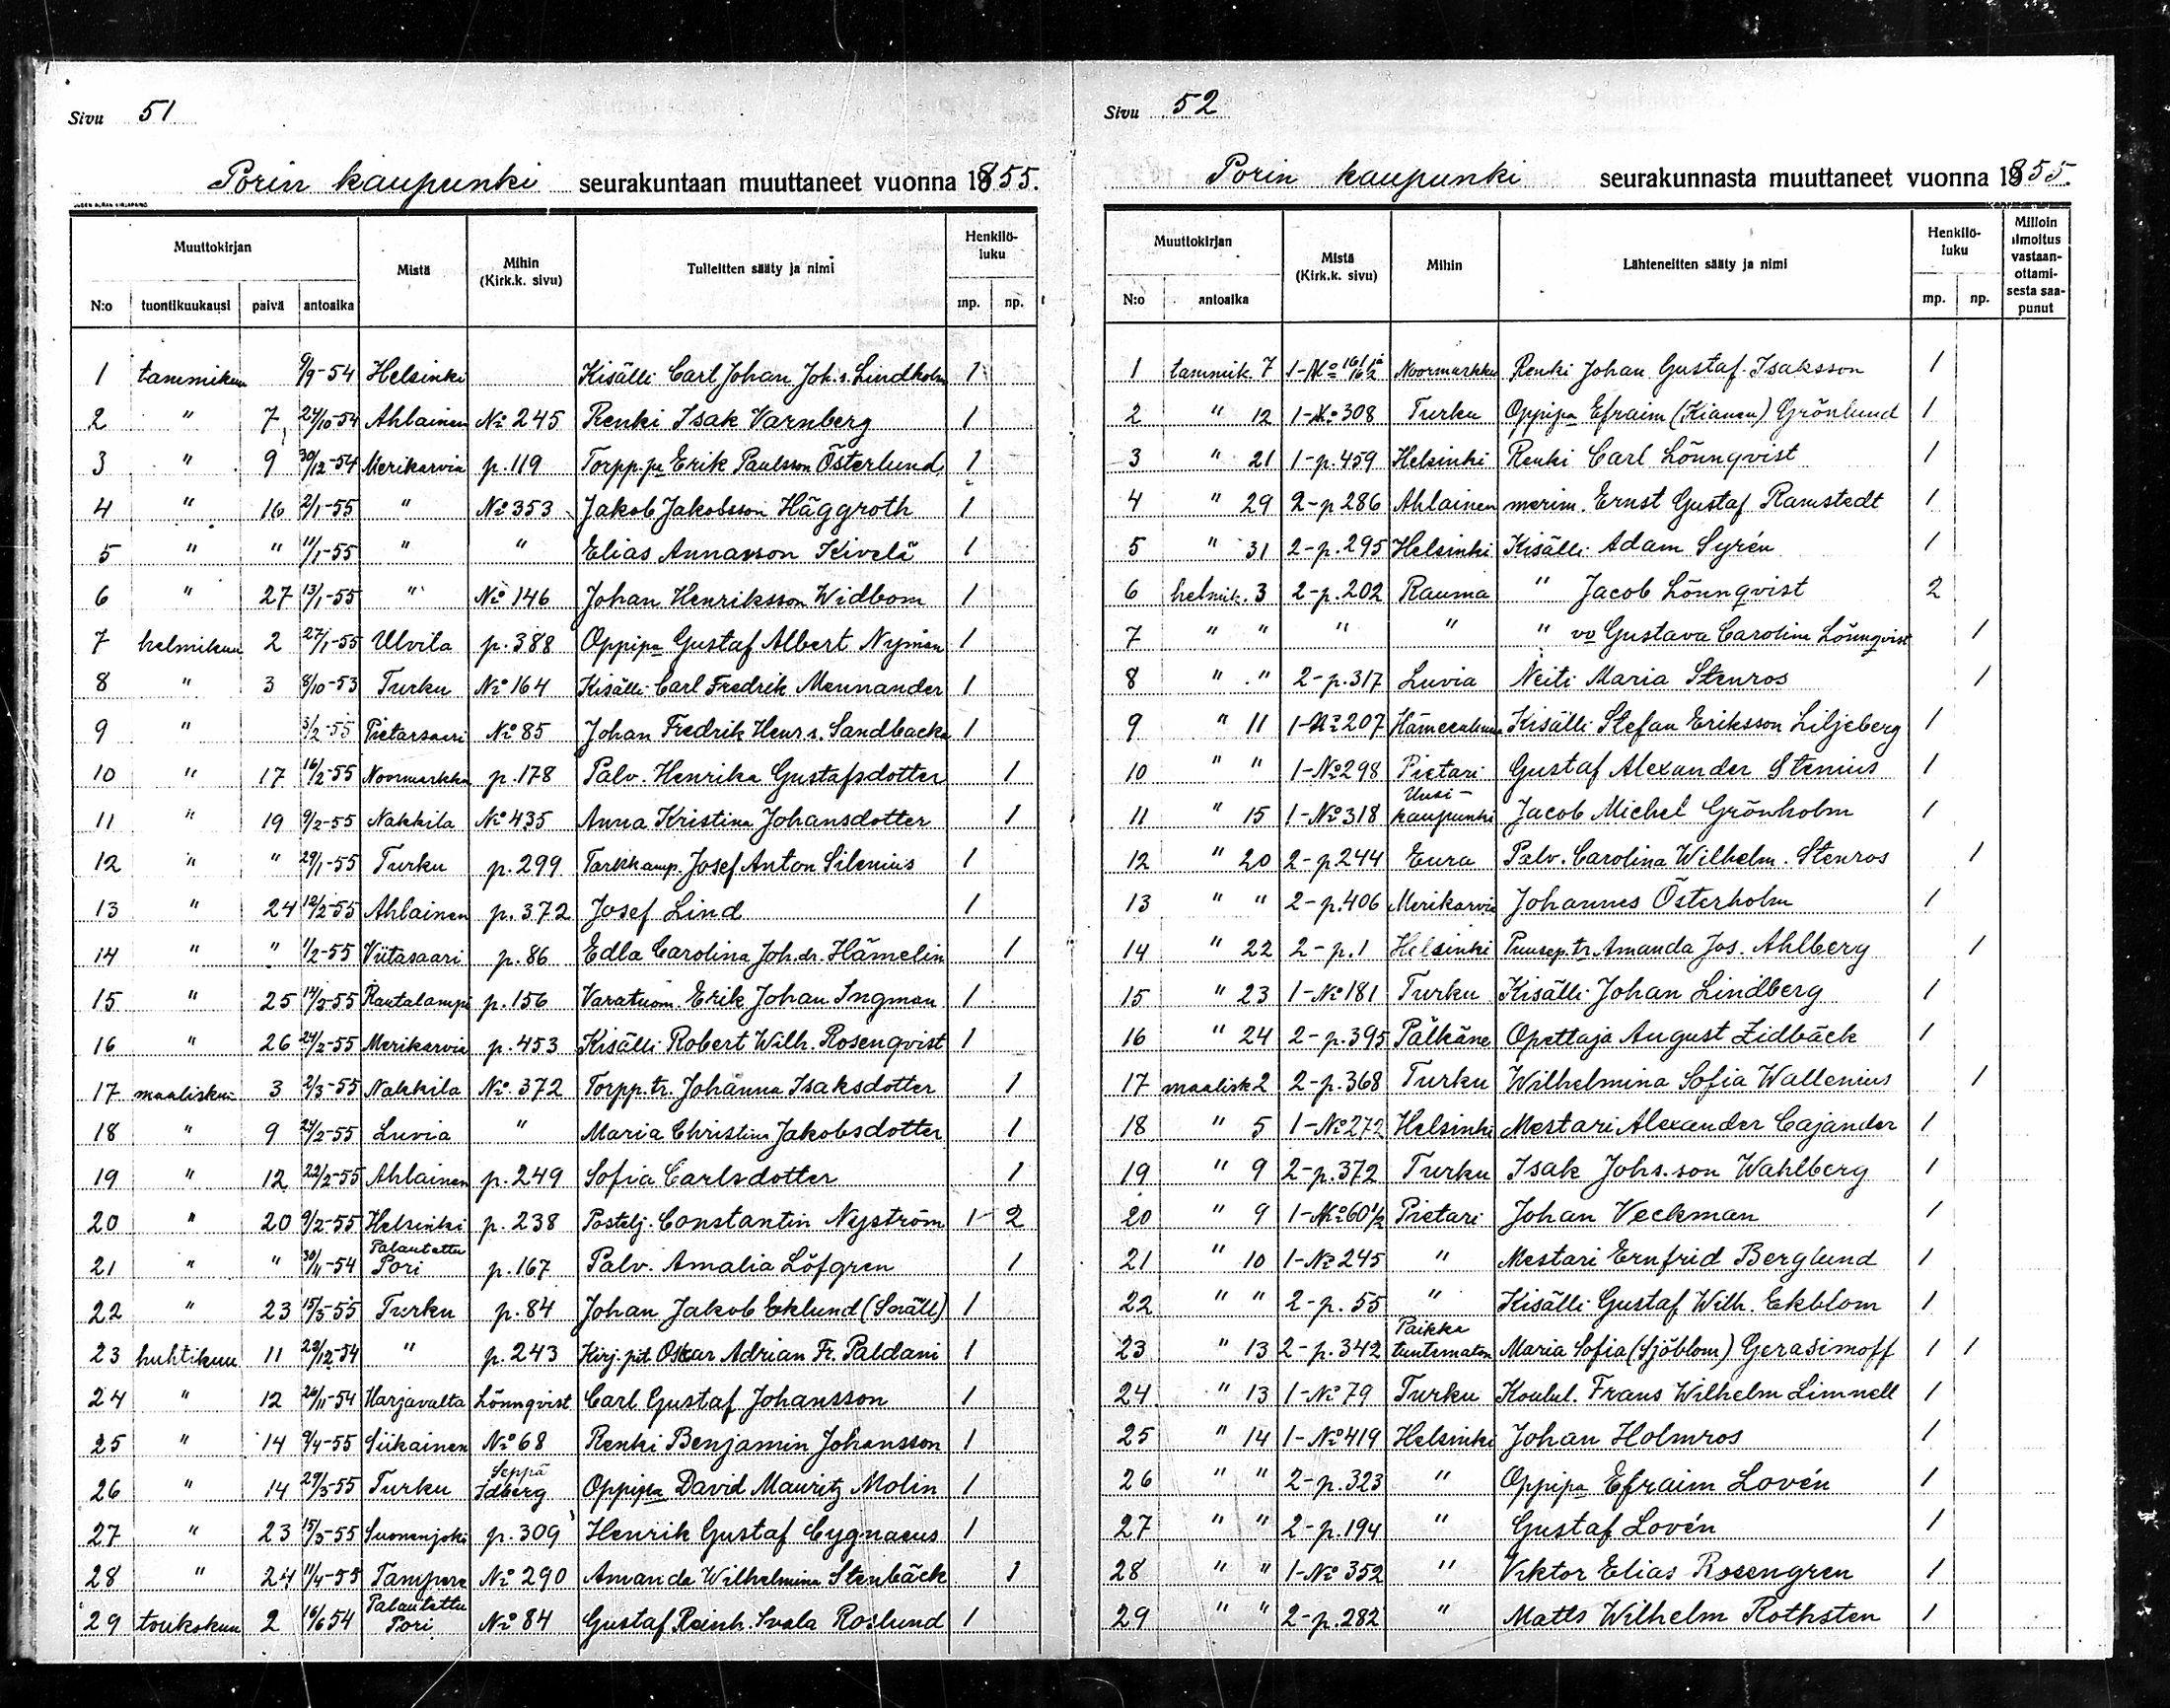 Sivu 51
Porin kaupunki seurakuntaan muuttaneet vuonna 1855.
Muuttokirjan Mistä Mihin (Kirk.k. sivu) Tulleitten sääty ja nimi Henkilöluku
N:o tuontikuukausi päivä antoaika mp. np.
1 tammikuu 9/9-54 Helsinki Kisälli Carl Johan Joh.s. Lindholm 1
2 " 7 24/10-54 Ahlainen No 245 Renki Isak Varnberg 1
3 " 9 30/12-54 Merikarvia p. 119 Torpp.pa Erik Paulsson Österlund 1
4 " 16 2/1-55 " No 353 Jakob Jakobsson Häggroth 1
5 " " 11/1-55 " " Elias Annasson Kivelä 1
6 " 27 13/1-55 " No 146 Johan Henriksson Widbom 1
7 helmikuu 2 27/1-55 Ulvila p. 388 Oppipa Gustaf Albert Nyman 1
8 " 3 8/10-53 Turku No 164 Kisälli Carl Fredrik Mennander 1
9 " 5/2-55 Pietarsaari No 85 Johan Fredrik Henr s. Sandbacka 1
10 " 17 16/2-55 Noormarkku p. 178 Palv. Henrika Gustafsdotter 1
11 " 19 9/2-55 Nakkila No 435 Anna Kristina Johansdotter 1
12 " " 29/1-55 Turku p. 299 Tarkk.amp. Josef Anton Silenius 1
13 " 24 12/2-55 Ahlainen p. 372 Josef Lind 1
14 " " 1/2-55 Viitasaari p. 86 Edla Carolina Joh.dr. Hämelin 1
15 " 25 14/2-55 Rautalampi p. 156 Varatuom. Erik Johan Ingman 1
16 " 26 24/2-55 Merikarvia p. 453 Kisälli Robert Wilh. Rosenqvist 1
17 maaliskuu 3 2/3-55 Nakkila No. 372 Torpp.tr. Johanna Isaksdotter 1
18 " 9 24/2-55 Luvia " Maria Christina Jakobsdotter 1
19 " 12 22/2-55 Ahlainen p. 249 Sofia Carlsdotter 1
20 " 20 9/2-55 Helsinki p. 238 Postelj. Constantin Nyström 1 2
21 " " 30/11-54 Palautettu Pori p. 167 Palv. Amalia Löfgren 1
22 " 23 15/3-55 Turku p. 84 Johan Jakob Eklund (Snäll) 1
23 huhtikuu 11 28/12-54 " p. 243 Kirj.pit. Oskar Adrian Fr. Paldani 1
24 " 12 26/11-54 Harjavalta Lönnqvist Carl Gustaf Johansson 1
25 " 14 9/4-55 Siikainen No 68 Renki Benjamin Johansson 1
26 " 14 29/3-55 Turku Seppä Idberg Oppipa David Mauritz Molin 1
27 " 23 15/3-55 Suonenjoki p. 309 Henrik Gustaf Cygnaeus 1
28 " 24 11/4-55 Tampere No 290 Amanda Wilhelmina Stenbäck 1
29 toukokuu 2 16/6 54 Palautettu Pori No 84 Gustaf Reinh. Svala Roslund 1
Sivu 52
Porin kaupunki seurakunnasta muuttaneet vuonna 1855.
Muuttokirjan Mistä (Kirk.k. sivu) Mihin Lähteneitten sääty ja nimi Henkilöluku Milloin ilmoitus vastaanottamisesta saapunut
N:o antoaika mp. np.
1 tammik. 7 1-No 161 ja 162 Noormarkku Renki Johan Gustaf Isaksson 1
2 " 12 1-No 308 Turku Oppipa Efraim (Kianen) Grönlund 1
3 " 21 1-p. 459 Helsinki Renki Carl Lönnqvist 1
4 " 29 2-p 286 Ahlainen merim. Ernst Gustaf Ramstedt 1
5 " 31 2-p. 295 Helsinki Kisälli Adam Syrén 1
6 helmik. 3 2-p. 202 Rauma " Jacob Lönnqvist 2
7 " " " " " vo Gustava Carolina Lönnqvist 1
8 " " 2-p. 317 Luvia Neiti Maria Stenros 1
9 " 11 1-No 207 Hämeenlinna Kisälli Stefan Eriksson Liljeberg 1
10 " " 1-No 298 Pietari Gustaf Alexander Stenius 1
11 " 15 1-No 318 Uusi-kaupunki Jacob Michel Grönholm 1
12 " 20 2-p 244 Eura Palv. Carolina Wilhelm. Stenros 1
13 " " 2-p. 406 Merikarvia Johannes Österholm 1
14 " 22 2-p. 1 Helsinki Puusep.tr. Amanda Jos. Ahlberg 1
15 " 23 1-No 181 Turku Kisälli Johan Lindberg 1
16 " 24 2-p. 395 Pälkäne Opettaja August Zidbäck 1
17 maalisk 2 2-p. 368 Turku Wilhelmina Sofia Wallenius 1
18 " 5 1-No 272 Helsinki Mestari Alexander Cajander 1
19 " 9 2-p. 372 Turku Isak Johs.son Wahlberg 1
20 " 9 1-No 60 1/2 Pietari Johan Veckman 1
21 " 10 1-No 245 " Mestari Ernfrid Berglund 1
22 " " 2-p. 55 " Kisälli Gustaf Wilh. Ekblom 1
23 " 13 2-p. 342 Paikka tuntematon Maria Sofia (Sjöblom) Gerasimoff 1 1
24 " 13 1-No 79 Turku Koulul. Frans Wilhelm Limnell 1
25 " 14 1-No 419 Helsinki Johan Holmros 1
26 " " 2-p. 323 " Oppipa Efraim Lovén 1
27 " " 2-p. 194 " Gustaf Lovén 1
28 " " 1-No 352 " Viktor Elias Rosengren 1
29 " " 2-p. 282 " Matts Wilhelm Rothsten 1